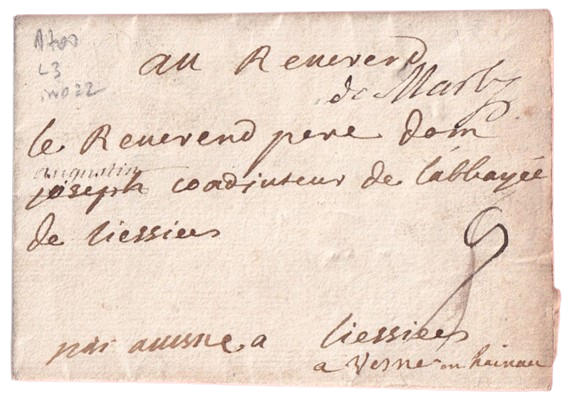 au Reuerend
de Marby
le Reuerend pere dom
augustin
joseph coadiuteur de l'abbayee
de Liessies
9
par auesne a Liessies
a Vesne en hainau